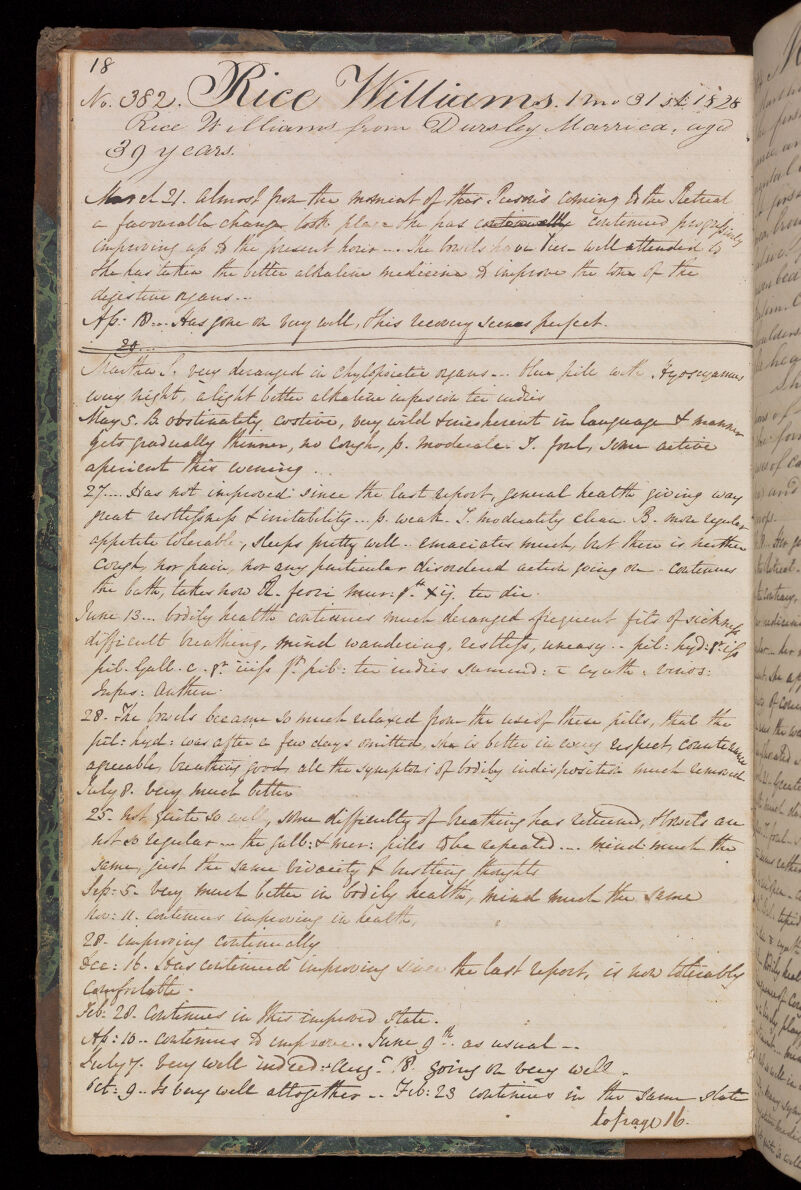 18
No. 382. Rice Williams. 1 mo 31st 1828
Rice Williams from Dursley Married, aged
39 years.
March 21. Almost from the moment of this Person's coming to the Retreat
a favourable change took place she has continued progressively
improving up to the present hour... The bowels have been well attended to
She has taken the bitter alkaline medicine to improve the tone of the
digestive organs...
Ap: 18... Has gone on very well, this recovery seems perfect.
20...
Martha S. very deranged in chylopoietic organs... blue pill with Hyoscyamus
every night, a light bitter alkaline infusion ter indies
May 5. B. obstinately costive, very wild & incoherent in language & manner
gets gradually thinner, no cough, p. moderate. T. foul, some active
aperient this evening...
27... Has not improved since the last report, general health giving way
great restlessness & irritability... p. weak. T. moderately clean. B. more regular
appetite tolerable, sleeps pretty well.. emaciates much, but there is neither
cough, nor pain, nor any particular disordered action going on - continues
the bath, takes now ter die.
June 13... bodily health continues much deranged frequent fits of sickness
difficult breathing, mind wandering, restless, uneasy.. pil: hyd:
pil. Galb. c. ter indies sumend: c cyath. vinos:
Infus: Anthem.
28. The bowels became so much relaxed from the use of these pills, that the
pil: hyd: was after a few days omitted, she is better in every respect, countenance
agreeable, breathing good, all the symptoms of bodily indisposition much removed
July 8. very much better
25. not quite so well, some difficulty of breathing has returned, & bowels are
not so regular... the galb: & mer: pills to be repeated.... mind much the
same, just the same vivacity & bustling thoughts
Sep: 5. very much better in bodily health, mind much the same
Nov: 11. continues improving in health,
28. improving continually
Dec: 16. Has continued improving since the last report, is now tolerably
comfortable.
Feb: 28. Continues in this improved state.
Ap: 10.. continues to improve. June 9th. as usual...
July 7. very well indeed.. Aug. 18. going on very well.
Oct: 9.. Is very well altogether.. Feb: 23 continues in the same state
to page 16.